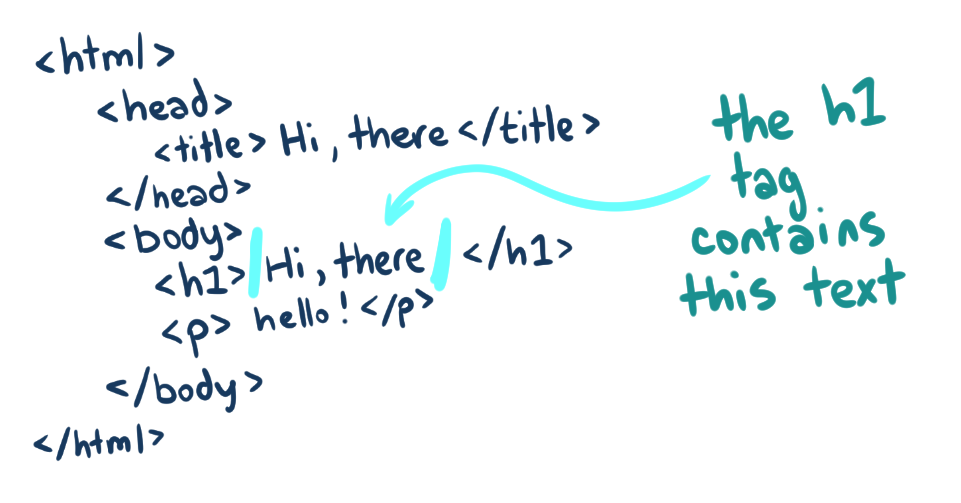 <html>
<head>
<title> Hi, there </title>
</head>
<body>
<h1> Hi, there </h1>
<p> hello! </p>
</body>
</html>
the h1
tag
contains
this text